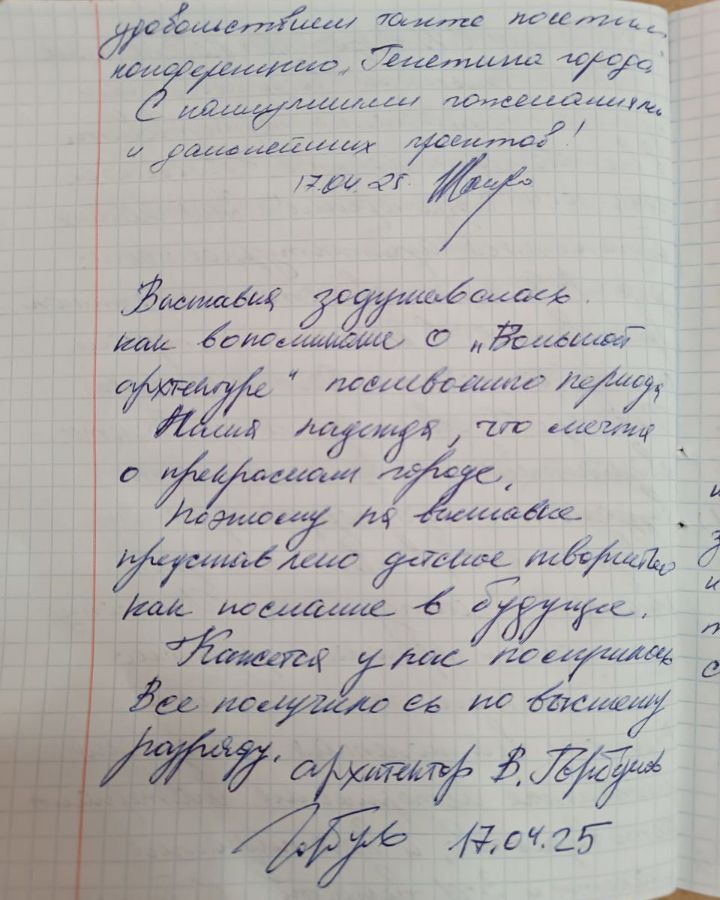 удовольствием также посетили
конференцию „Генетика города"
С наилучшими пожеланиями
и дальнейших проектов!
17.04.25.
Выставка задумывалась
как вопоминание о „Большой
архтектуре" послевоенного периода
Наша надежда, что мечта
о прекрасном городе.
Поэтому на выставке
представлено детское творчество
как послание в будущее.
Кажется у нас получилось
Все получилось по высшему
разряду.
архитектор В. Горбунов
17.04.25